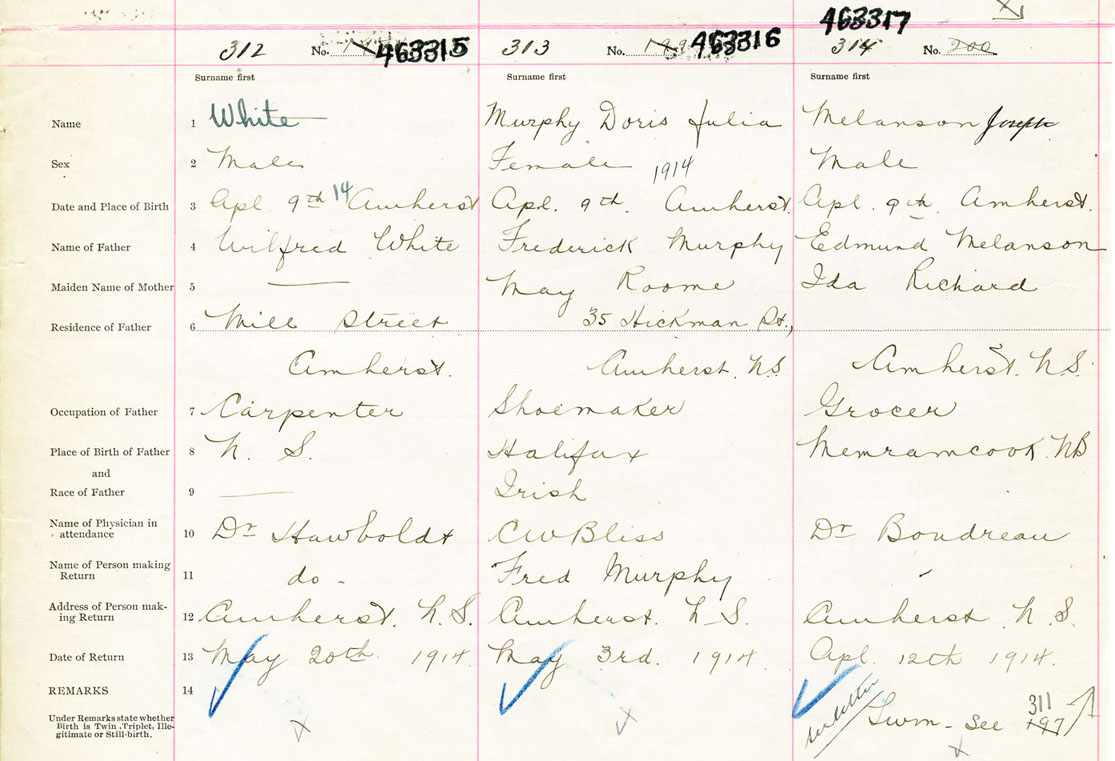 463317
312 No. 463315 313 No. 463316 314 No. 200
Surname first Surname first Surname first
Name 1 White Murphy Doris Julia Melanson Joseph
Sex 2 Male Female 1914 Male
Date and Place of Birth 3 Apl. 9th 14 Amherst Apl. 9th. Amherst. Apl. 9th. Amherst.
Name of Father 4 Wilfred White Frederick Murphy Edmund Melanson
Maiden Name of Mother 5 — May Roome Ida Richard
Residence of Father 6 Mill Street 35 Hickman St.,
Amherst. Amherst, N.S. Amherst. N.S.
Occupation of Father 7 Carpenter Shoemaker Grocer
Place of Birth of Father 8 N. S. Halifax Memramcook NB
and
Race of Father 9 — Irish
Name of Physician in
attendance 10 Dr Hawboldt CW Bliss Dr Boudreau
Name of Person making
Return 11 do - Fred Murphy
Address of Person mak-
ing Return 12 Amherst. N.S. Amherst. N-S. Amherst N.S.
Date of Return 13 May 20th 1914. May 3rd. 1914. Apl. 12th 1914.
REMARKS 14
see letter
311
Twin - See 197
Under Remarks state whether
Birth is Twin, Triplet, Ille-
gitimate or Still-birth.